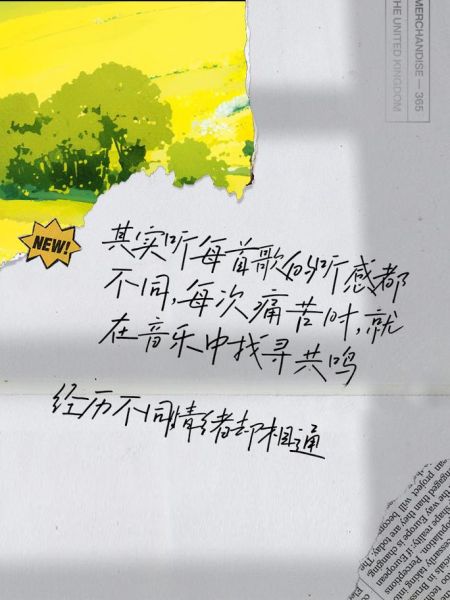 MERCHANDISE — 365
THE UNITED KINGDOM
NEW!
其实听每首歌的听感都
不同,每次痛苦时,就
在音乐中找寻共鸣
经历不同情绪却相通